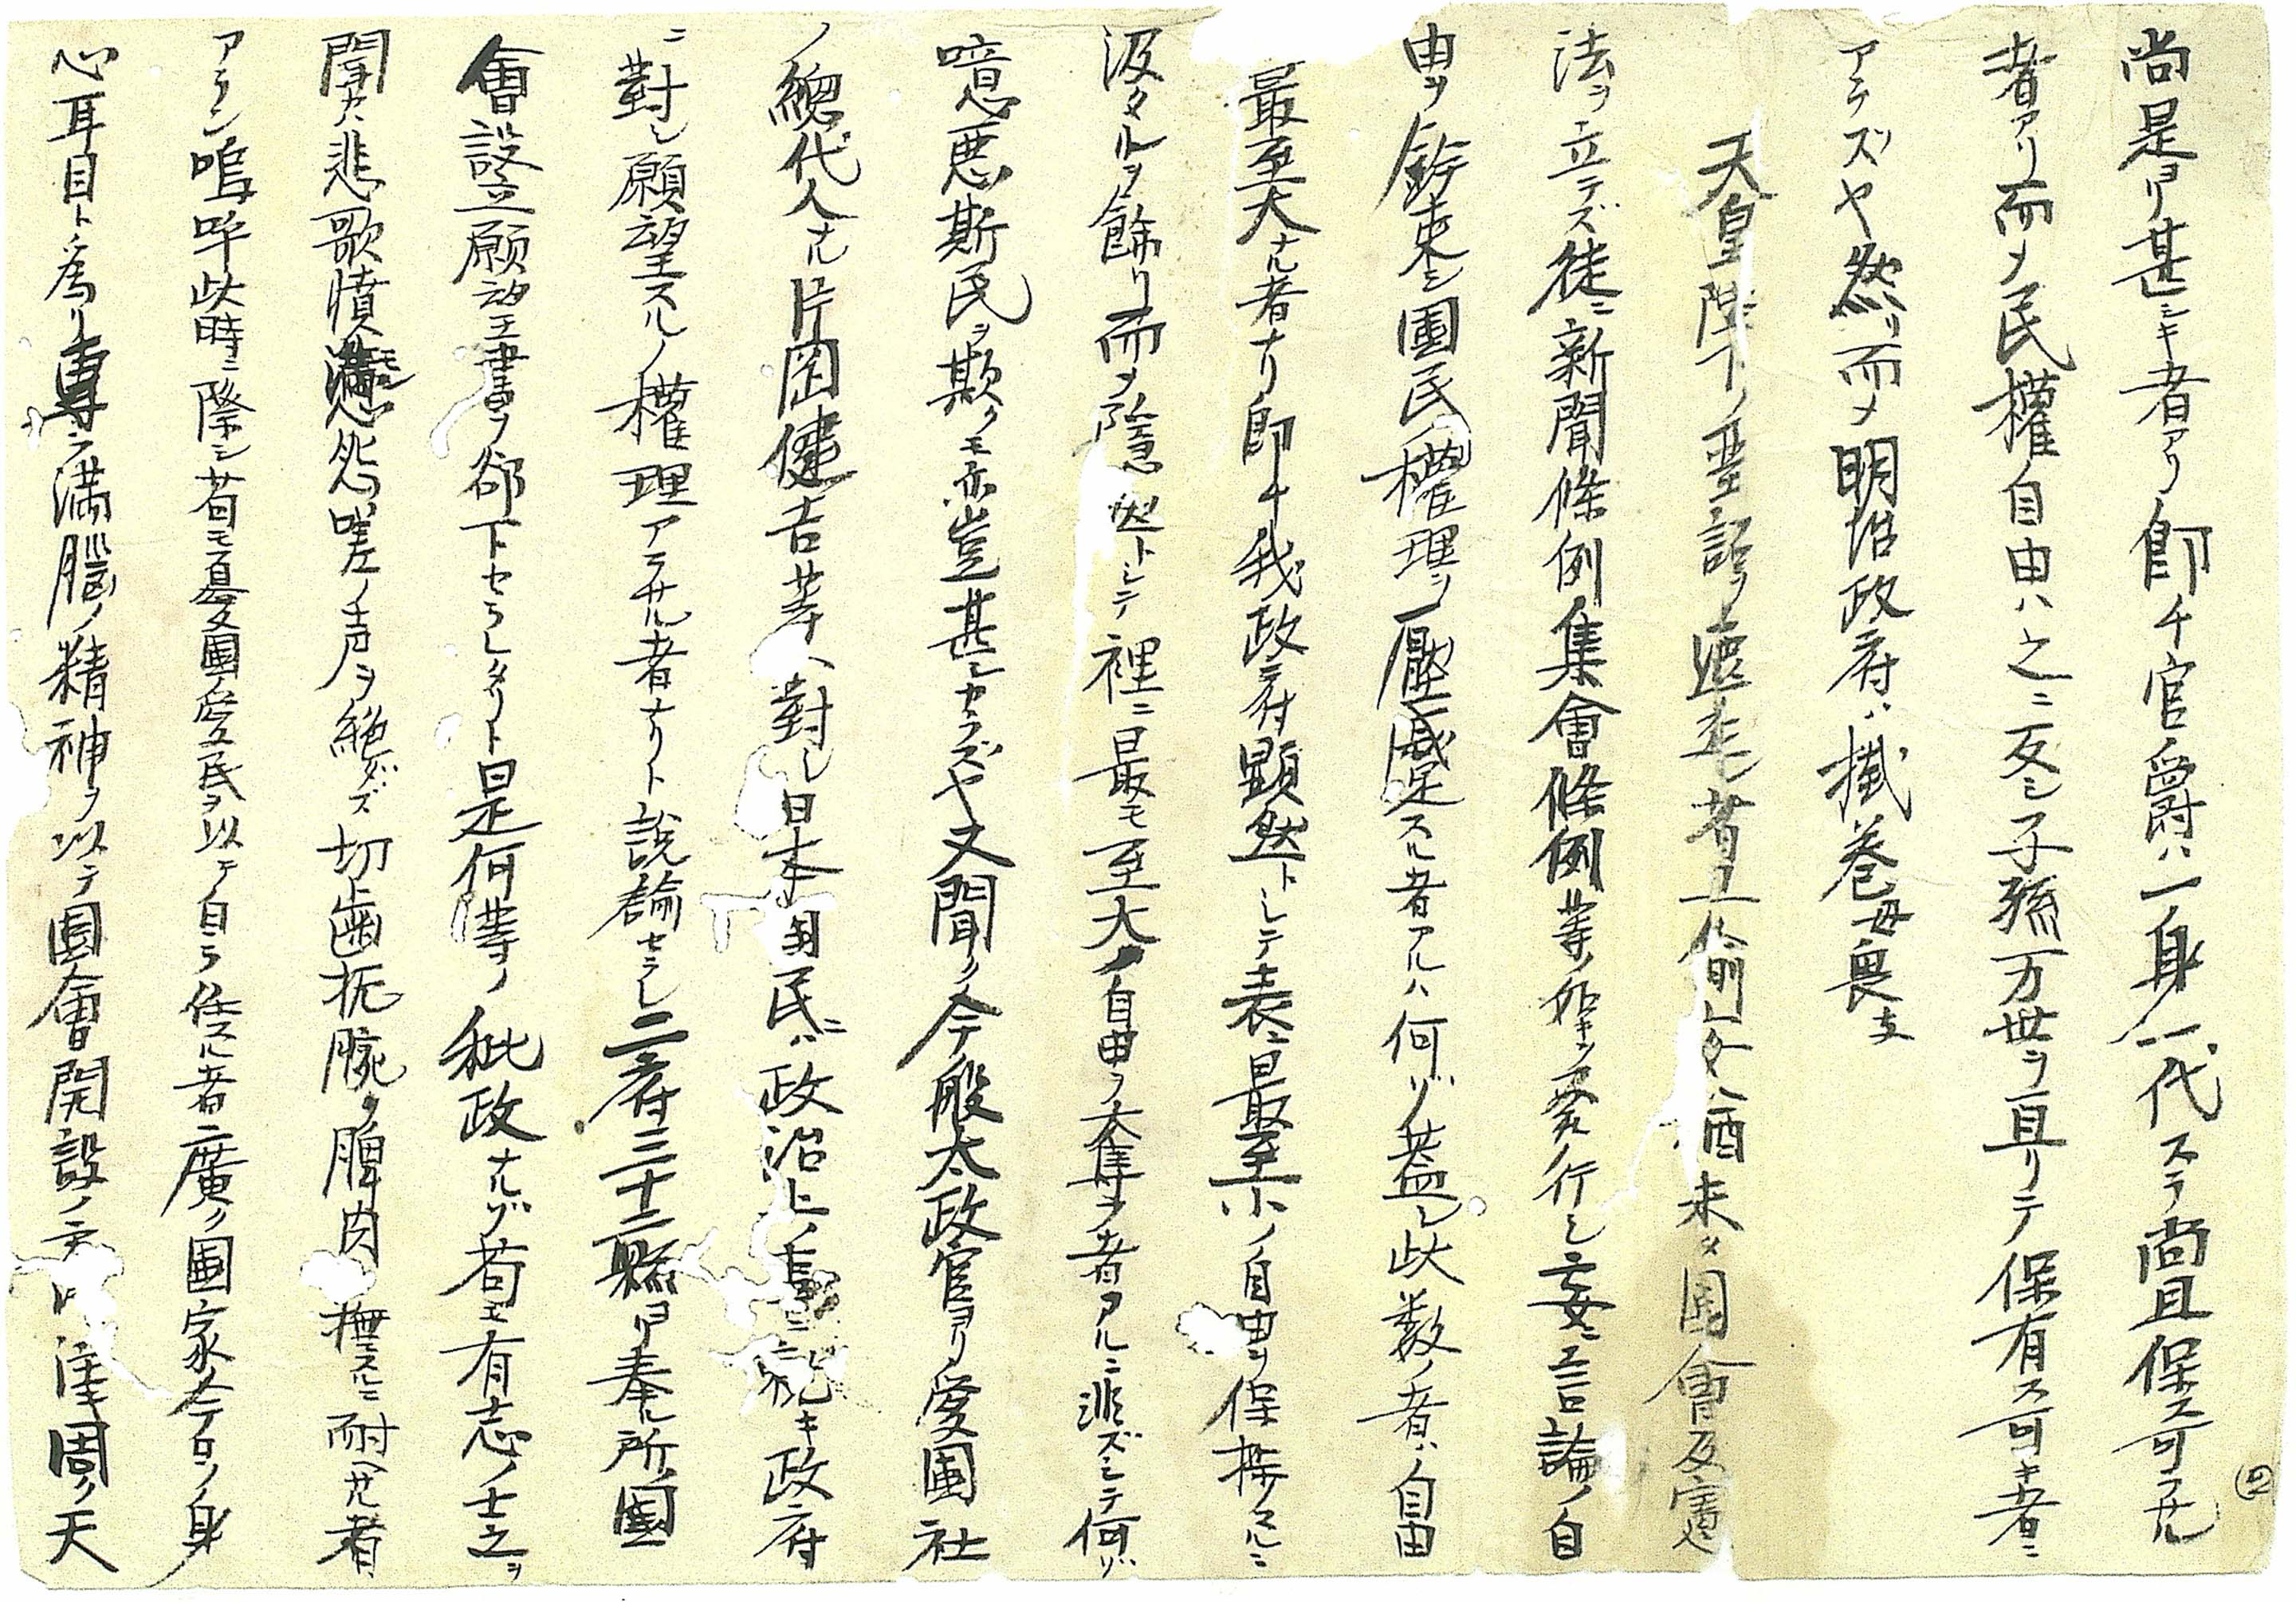 尚是ヨリ甚シキ者アリ即チ官爵ハ一身一代スラ尚且保ス可ラサル
者アリ而メ民權自由ハ之ニ反シ子孫万世ヲ亘リテ保有ス可キ者ニ
アラズヤ然リ而メ明治政府ハ掀巻毋喪支
天皇陛下ノ聖詔ヲ遮 苟且偸安 未タ國會及憲
法ヲ立テズ徒ニ新聞條例集會條例等ノ如キヲ発行シ妄ニ言論ノ自
由ヲ鈐束シ國民權理ヲ壓滅スル者アルハ何ゾ蓋シ此数ノ者ハ自由
最至大ナル者ナリ即チ我政府顕然トシテ表ニ最至小ノ自由ヲ保挊スルニ
汲々タルヲ餙リ而メ隠然トシテ裡ニ最モ至大ノ自由ヲ奪フ者アルニ非ズシテ何ゾ
噫悪斯民ヲ欺クモ亦豈甚シカラズヤ又聞ク今般太政官ヨリ愛國社
ノ總代人ナル片岡健吉等ヘ對シ日本国民ニハ政治上ノ事ニ就キ政府
ニ對シ願望スルノ權理アラサル者ナリト説論セラレ二府二十二縣ヨリ奉ル所ノ國
會設立願望書ヲ却下セラレタリト是何等ノ秕政ナルゾ苟モ有志ノ士之ヲ
聞カバ悲歌憤懣怨嗟ノ声ヲ絶タズ切歯扼腕ノ脾肉 撫スルニ耐ヘサル者
アラン嗚呼此時ニ際シ苟モ憂國愛民ヲ以テ自ラ任スル者ニ廣ク國家今日ノ身
心耳目ト為リ専ラ満腦ノ精神ヲ以テ國會開設ノ 注周ノ天
②